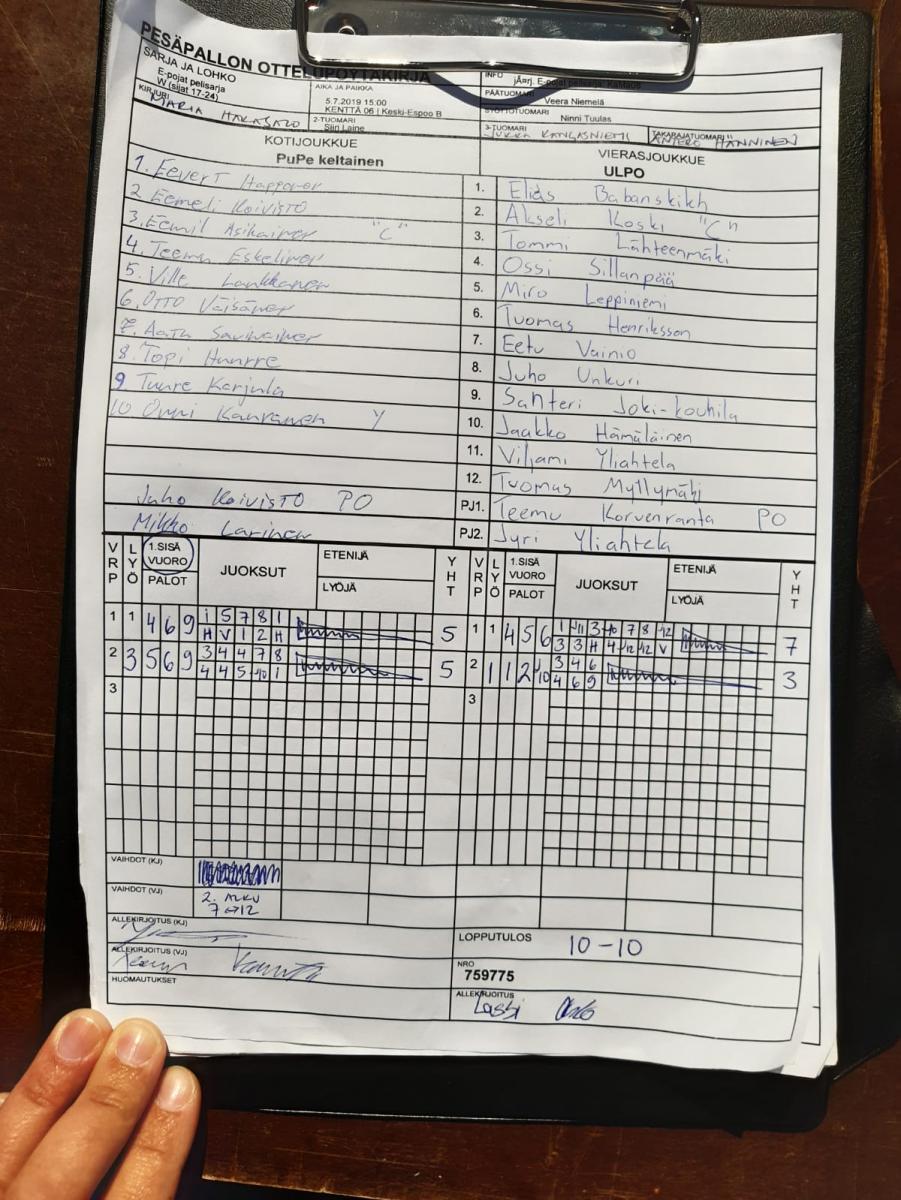 PESÄPALLON OTTELUPÖYTÄKIRJA
SARJA JA LOHKO
E-pojat pelisarja
W (sijat 17-24)
AIKA JA PAIKKA
5.7.2019 15:00
KENTTÄ 06 | Keski-Espoo B
INFO
E-pojat
PÄÄTUOMARI
Veera Niemelä
SYÖTTÖTUOMARI
Ninni Tuulas
KIRJURI
MARIA HAKASALO
2-TUOMARI
Siiri Laine
3-TUOMARI
JUKKA KANGASNIEMI
TAKARAJATUOMARI
ANTERO HÄNNINEN
KOTIJOUKKUE
PuPe keltainen
VIERASJOUKKUE
ULPO
1. Eevert Happonen
2. Eemeli Koivisto
3. Eemil Asikainen "C"
4. Teemu Eskelinen
5. Ville Laukkanen
6. Otto Väisänen
7. Aatu Savinainen
8. Topi Huurre
9 Tuure Karjula
10 Onni Kauranen Y
Juho Koivisto PO
Mikko Larinen
1. Elias Babanskikh
2. Akseli Koski "C"
3. Tommi Lähteenmäki
4. Ossi Sillanpää
5. Miro Leppiniemi
6. Tuomas Henriksson
7. Eetu Vainio
8. Juho Unkuri
9. Santeri Joki-Kouhila
10. Jaakko Hämäläinen
11. Viljami Yliahtela
12. Tuomas Myllymäki
PJ1. Teemu Korvenranta PO
PJ2. Jyri Yliahtela
VRP LYÖ 1.SISÄ VUORO PALOT JUOKSUT ETENIJÄ LYÖJÄ YHT
VRP LYÖ 1.SISÄ VUORO PALOT JUOKSUT ETENIJÄ LYÖJÄ YHT
1 1 4 6 9 1 5 7 8 1 5
H V 1 2 H
2 3 5 6 9 3 4 4 7 8 5
4 4 5 10 1
3
1 1 4 5 6 1 11 3 10 7 8 12 7
3 3 H 4 12 12 V
2 1 1 2 10 3 4 6 3
4 6 9
3
VAIHDOT (KJ)
VAIHDOT (VJ)
2. ALKU
7 ↔ 12
ALLEKIRJOITUS (KJ)
ALLEKIRJOITUS (VJ)
HUOMAUTUKSET
LOPPUTULOS
10-10
NRO
759775
ALLEKIRJOITUS
Lassi